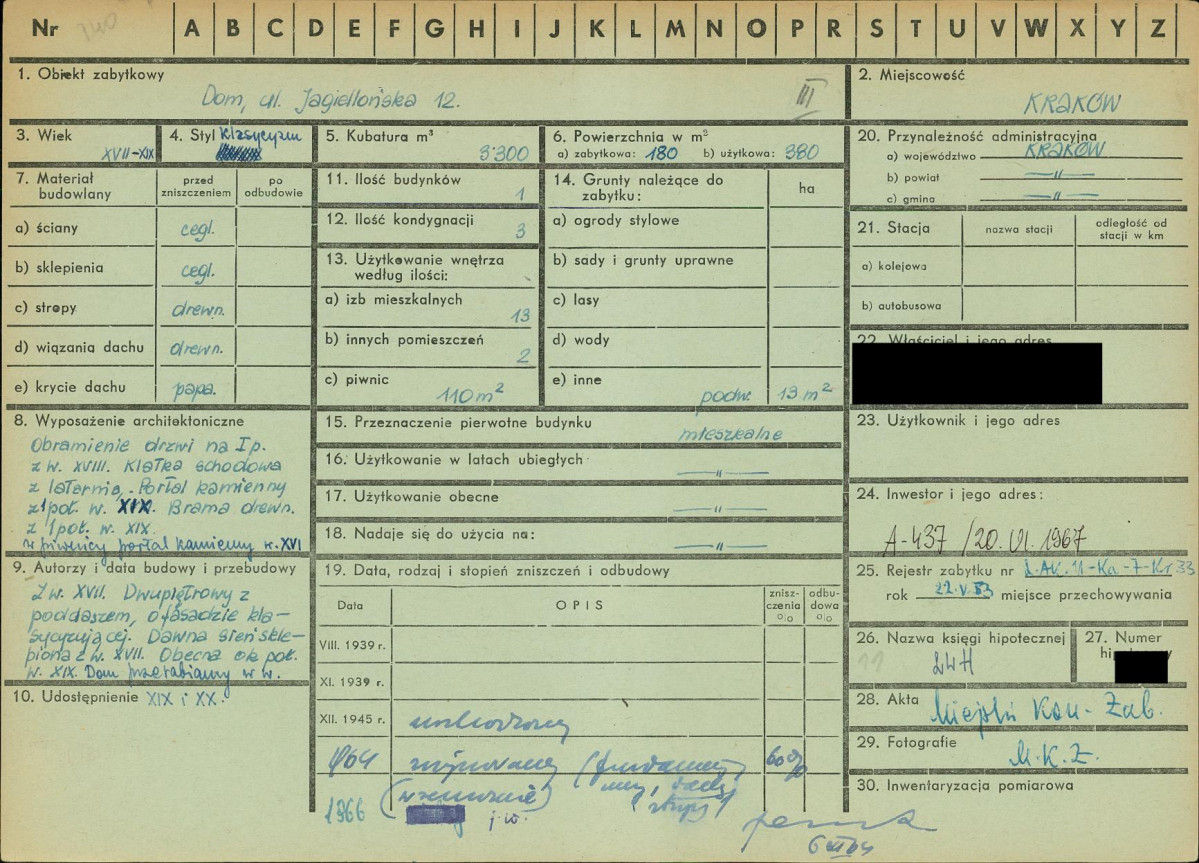 Nr 740 A B C D E F G H I J K L M N O P R S T U V W X Y Z
1. Obiekt zabytkowy
Dom, ul. Jagiellońska 12.
III
2. Miejscowość
KRAKÓW
3. Wiek
XVII-XIX
4. Styl Klasycyzm
5. Kubatura m³
3300
6. Powierzchnia w m²
a) zabytkowa: 180 b) użytkowa: 380
20. Przynależność administracyjna
a) województwo KRAKÓW
b) powiat —„—
c) gmina —„—
7. Materiał budowlany
przed zniszczeniem
po odbudowie
a) ściany cegl.
b) sklepienia cegl.
c) stropy drewn.
d) wiązania dachu drewn.
e) krycie dachu papa.
11. Ilość budynków
1
12. Ilość kondygnacji
3
13. Użytkowanie wnętrza
według ilości:
a) izb mieszkalnych
13
b) innych pomieszczeń
2
c) piwnic
110 m²
14. Grunty należące do
zabytku:
ha
a) ogrody stylowe
b) sady i grunty uprawne
c) lasy
d) wody
e) inne
podw. 13 m²
21. Stacja
nazwa stacji
odległość od
stacji w km
a) kolejowa
b) autobusowa
22. Właściciel i jego adres
8. Wyposażenie architektoniczne
Obramienie drzwi na I p.
z w. XVIII. Klatka schodowa
z latarnią. Portal kamienny
z 1 poł. w. XIX. Brama drewn.
z 1 poł. w. XIX.
w piwnicy portal kamienny w. XVI
15. Przeznaczenie pierwotne budynku
mieszkalne
16. Użytkowanie w latach ubiegłych
—„—
17. Użytkowanie obecne
—„—
18. Nadaje się do użycia na:
—„—
23. Użytkownik i jego adres
24. Inwestor i jego adres:
A-437 /20.VI.1967
9. Autorzy i data budowy i przebudowy
Z w. XVII. Dwupiętrowy z
poddaszem, o fasadzie kla-
sycyzującej. Dawna sień skle-
piona z w. XVII. Obecna ok. poł.
w. XIX. Dom przerabiany w w.
XIX i XX.
10. Udostępnienie
19. Data, rodzaj i stopień zniszczeń i odbudowy
Data
OPIS
znisz-
czenia
%
odbu-
dowa
%
VIII. 1939 r.
XI. 1939 r.
XII. 1945 r.
1964 60%
1966 (w remoncie) j.w.
stropy
6 XI 64
25. Rejestr zabytku nr
rok 22.V.83 miejsce przechowywania
26. Nazwa księgi hipotecznej
LWH
27. Numer
28. Akta
Miejski Kon. Zab.
29. Fotografie
M.K.Z.
30. Inwentaryzacja pomiarowa